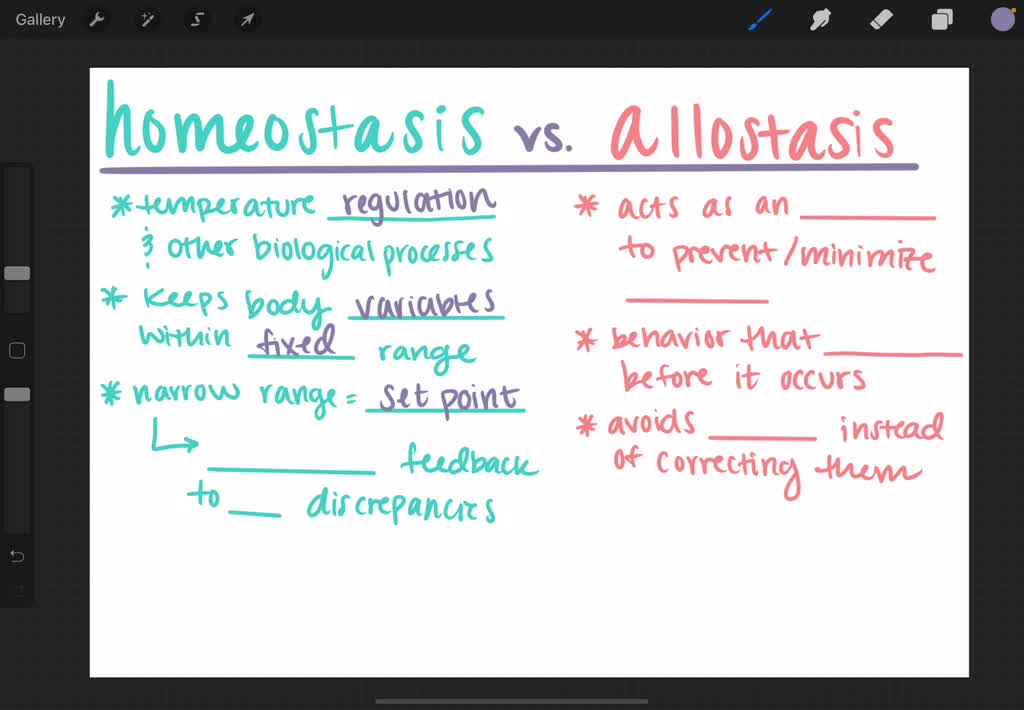 Gallery
homeostasis vs. allostasis
*temperature regulation
& other biological processes
* keeps body variables
within fixed range
* narrow range = set point
↳ ________ feedback
to ___ discrepancies
* acts as an ________
to prevent/minimize
________
* behavior that ________
before it occurs
* avoids ______ instead
of correcting them